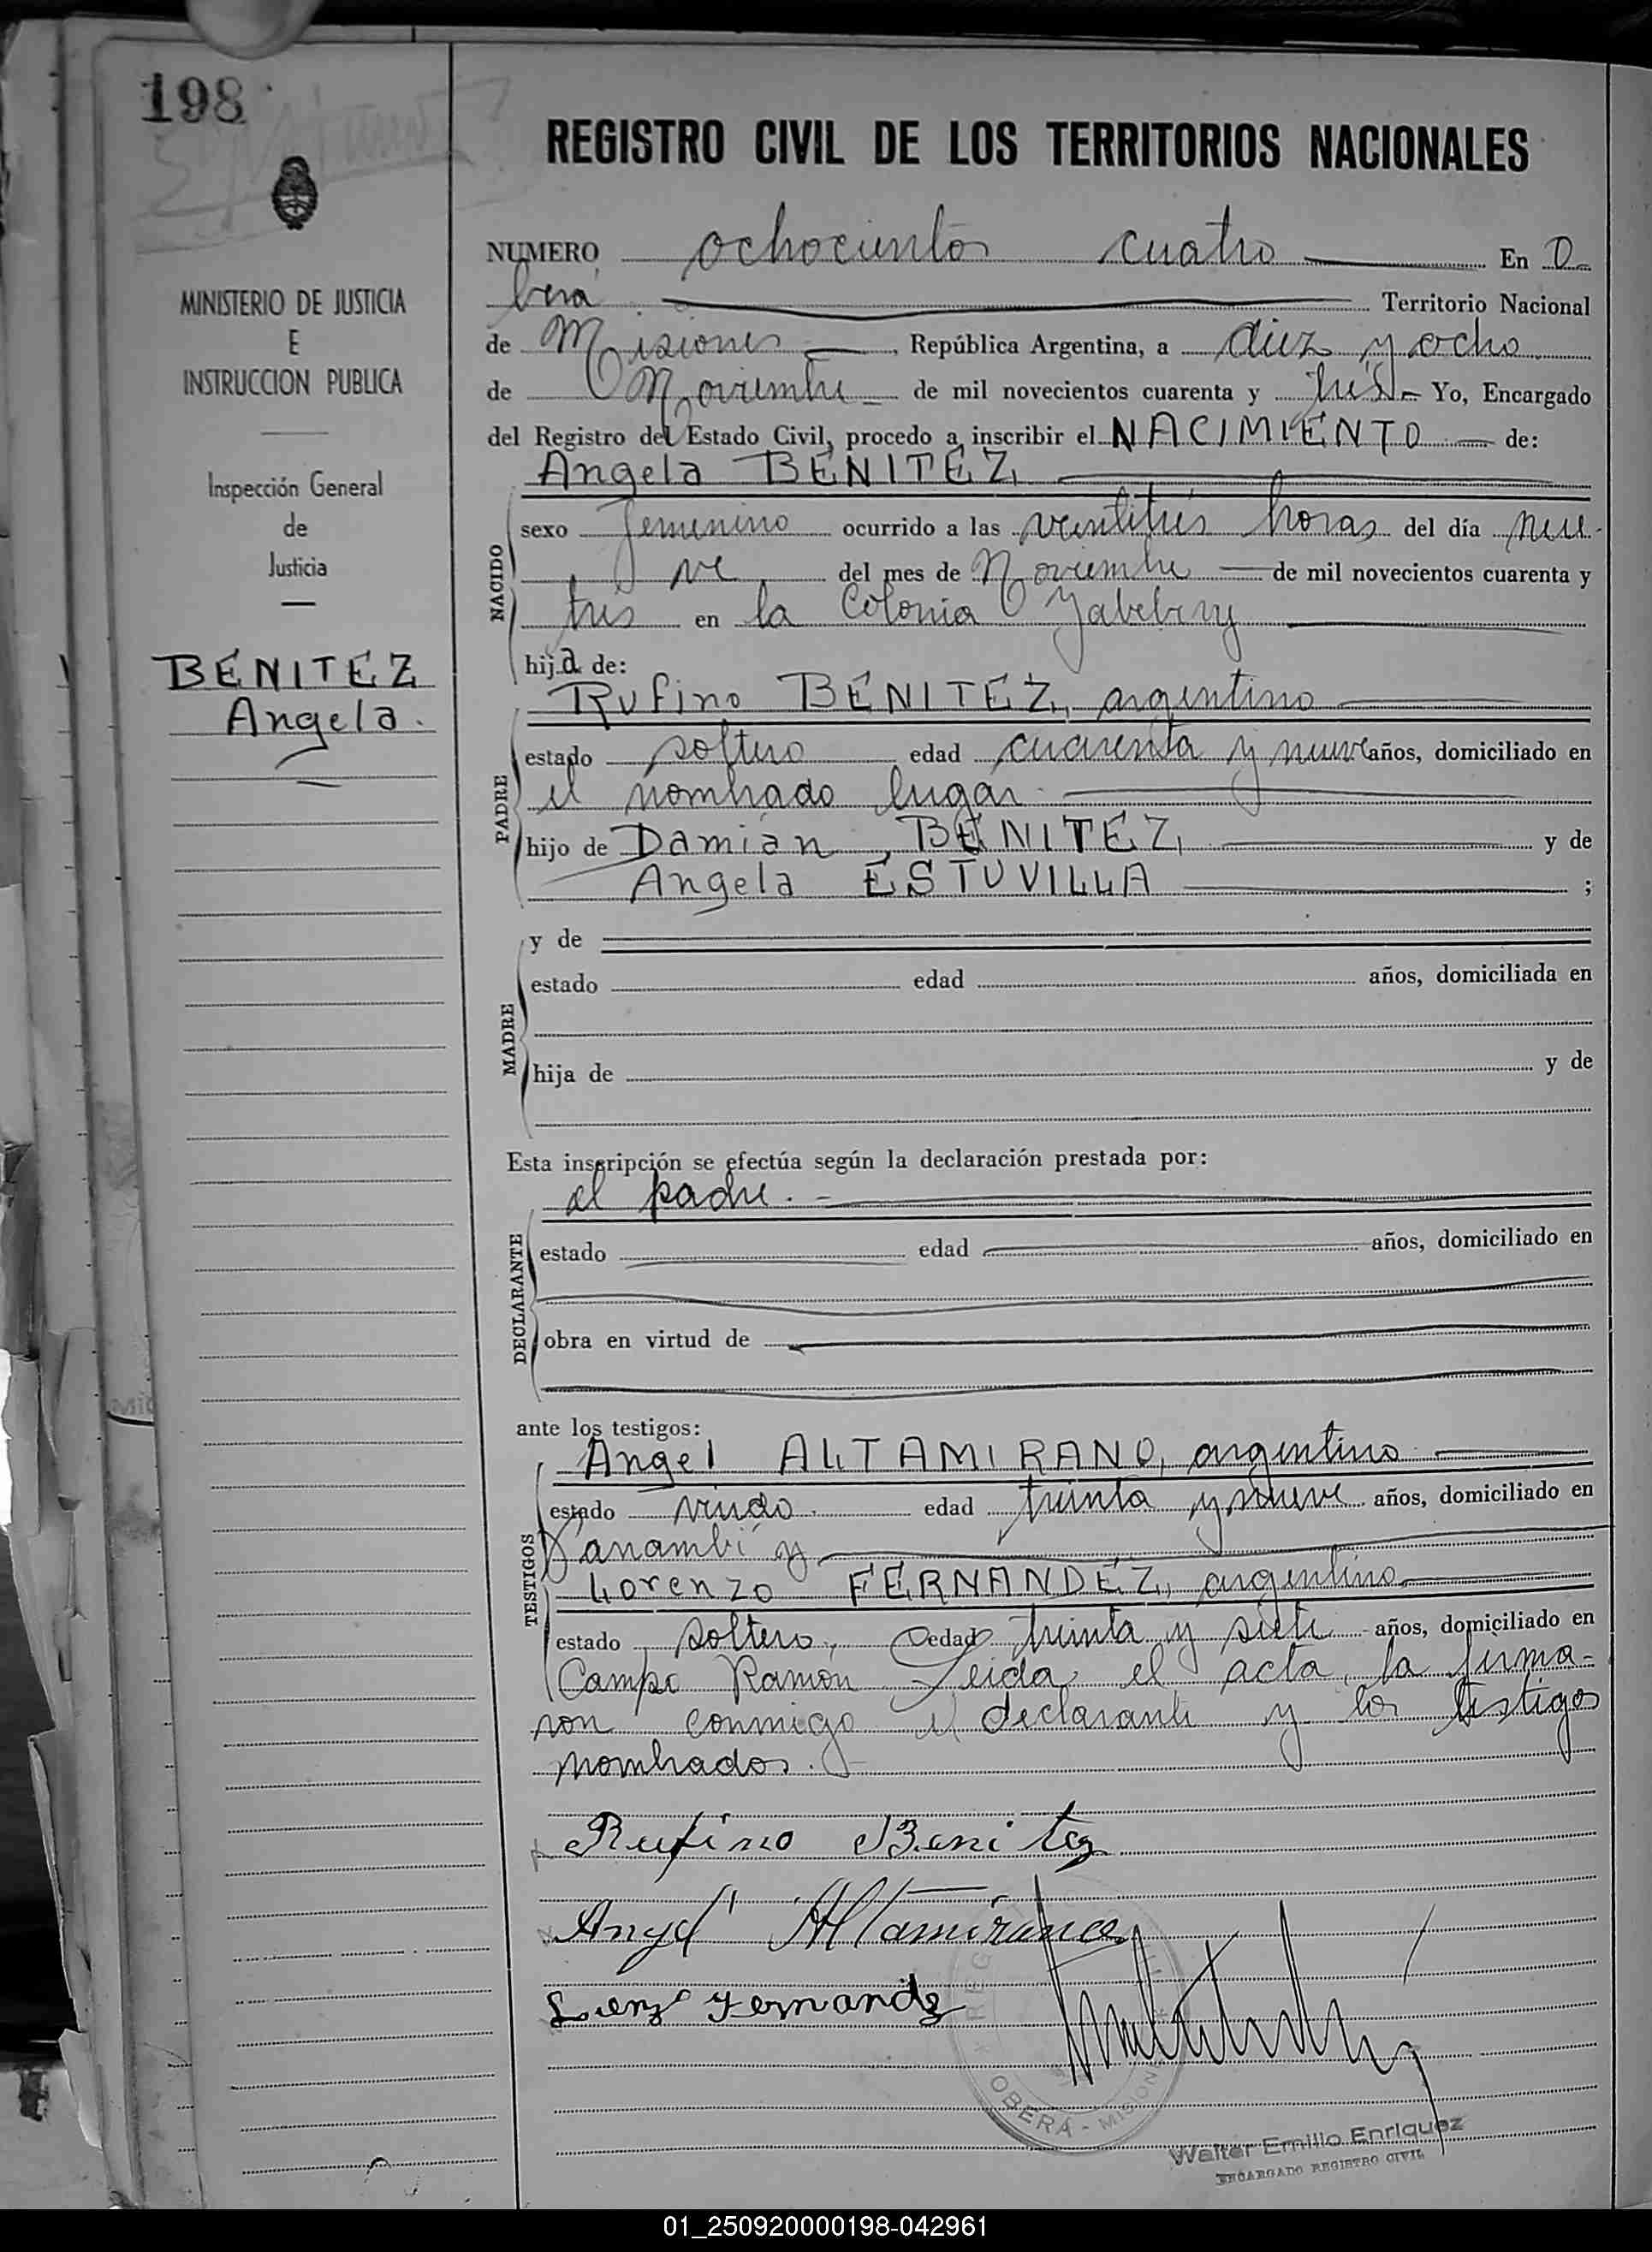 198
REGISTRO CIVIL DE LOS TERRITORIOS NACIONALES
MINISTERIO DE JUSTICIA
E
INSTRUCCION PUBLICA
Inspección General
de
Justicia
BENITEZ
Angela.
NUMERO ochocientos cuatro En O-
berá Territorio Nacional
de Misiones, República Argentina, a diez y ocho
de Noviembre de mil novecientos cuarenta y tres Yo, Encargado
del Registro del Estado Civil, procedo a inscribir el NACIMIENTO de:
Angela BENITEZ
NACIDO
sexo femenino ocurrido a las veintitrés horas del día nue-
ve del mes de Noviembre de mil novecientos cuarenta y
tres en la Colonia Yabebiry
hija de:
Rufino BENITEZ, argentino
PADRE
estado soltero edad cuarenta y nueve años, domiciliado en
el nombrado lugar
hijo de Damián BENITEZ y de
Angela ESTUVILLA ;
MADRE
y de
estado edad años, domiciliada en
hija de y de
Esta inscripción se efectúa según la declaración prestada por:
el padre.
DECLARANTE
estado edad años, domiciliado en
obra en virtud de
ante los testigos:
Angel ALTAMIRANO, argentino
TESTIGOS
estado viudo. edad treinta y nueve años, domiciliado en
Panambí y
Lorenzo FERNANDEZ, argentino
estado soltero, edad treinta y siete años, domiciliado en
Campo Ramón Leida el acta, la firma-
ron conmigo el declarante y los testigos
nombrados.
Rufino Benitez
Angel Altamirano
Fernandez
OBERÁ - MISIONES
Walter Emilio Enriquez
ENCARGADO REGISTRO CIVIL
01_250920000198-042961